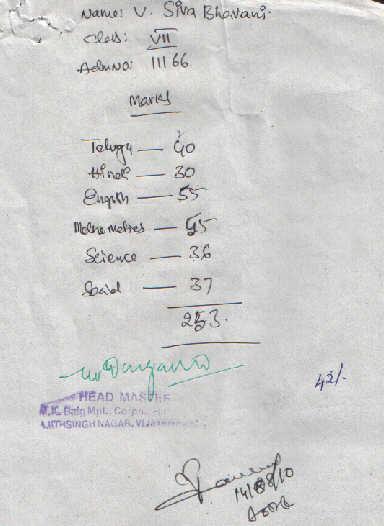 Name: V. Siva Bhavani.
Class: VII
Adm no: 11166
Marks
Telugu — 40
Hindi — 30
English — 55
Mathematics — 55
Science — 36
Social — 37
253.
42%
HEAD MASTER
Mpl. Corpn.
SINGH NAGAR,
14/08/10